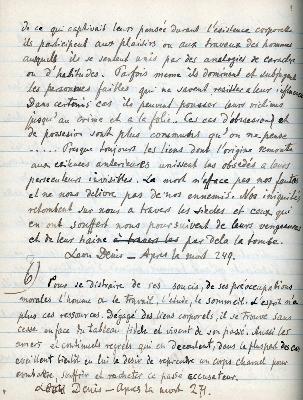 de ce qui captivait leur pensée durant l'existence corporelle
ils participent aux plaisirs ou aux travaux des hommes
auxquels ils se sentent unis par des analogies de caractère
ou d'habitudes. Parfois même ils dominent et subjuguent
les personnes faibles qui ne savent résister a leur influence
Dans certains cas ils peuvent pousser leurs victimes
jusqu'au crime et a la folie. Ces cas d'obsession et
de possession sont plus communs qu'on ne pense
..... Presque toujours les liens dont l'origine remonte
aux existences anterieures unissent les obsédés a leurs
persecuteurs invisibles. La mort n'efface pas nos fautes
et ne nous delivre pas de nos ennemis. Nos iniquités
retombent sur nous a travers les siècles et ceux qui
en ont souffert nous poursuivent de leurs vengeances
et de leur haine par dela la tombe.
Leon Denis - Apres la mort 249.
6) Pour se distraire de ses soucis, de ses préoccupations
morales l'homme a le travail, l'étude, le sommeil. L'esprit n'a
plus ces ressources. Dégagé des liens corporels, il se trouve sans
cesse en face du tableau fidèle et vivant de son passé. Aussi les
amers et continuels regrets qui en decoulent, dans la plupart des cas
eveillent bientôt en lui le désir de reprendre un corps charnel pour
combattre, souffrir et racheter ce passé accusateur.
Leon Denis - Apres la mort 271.